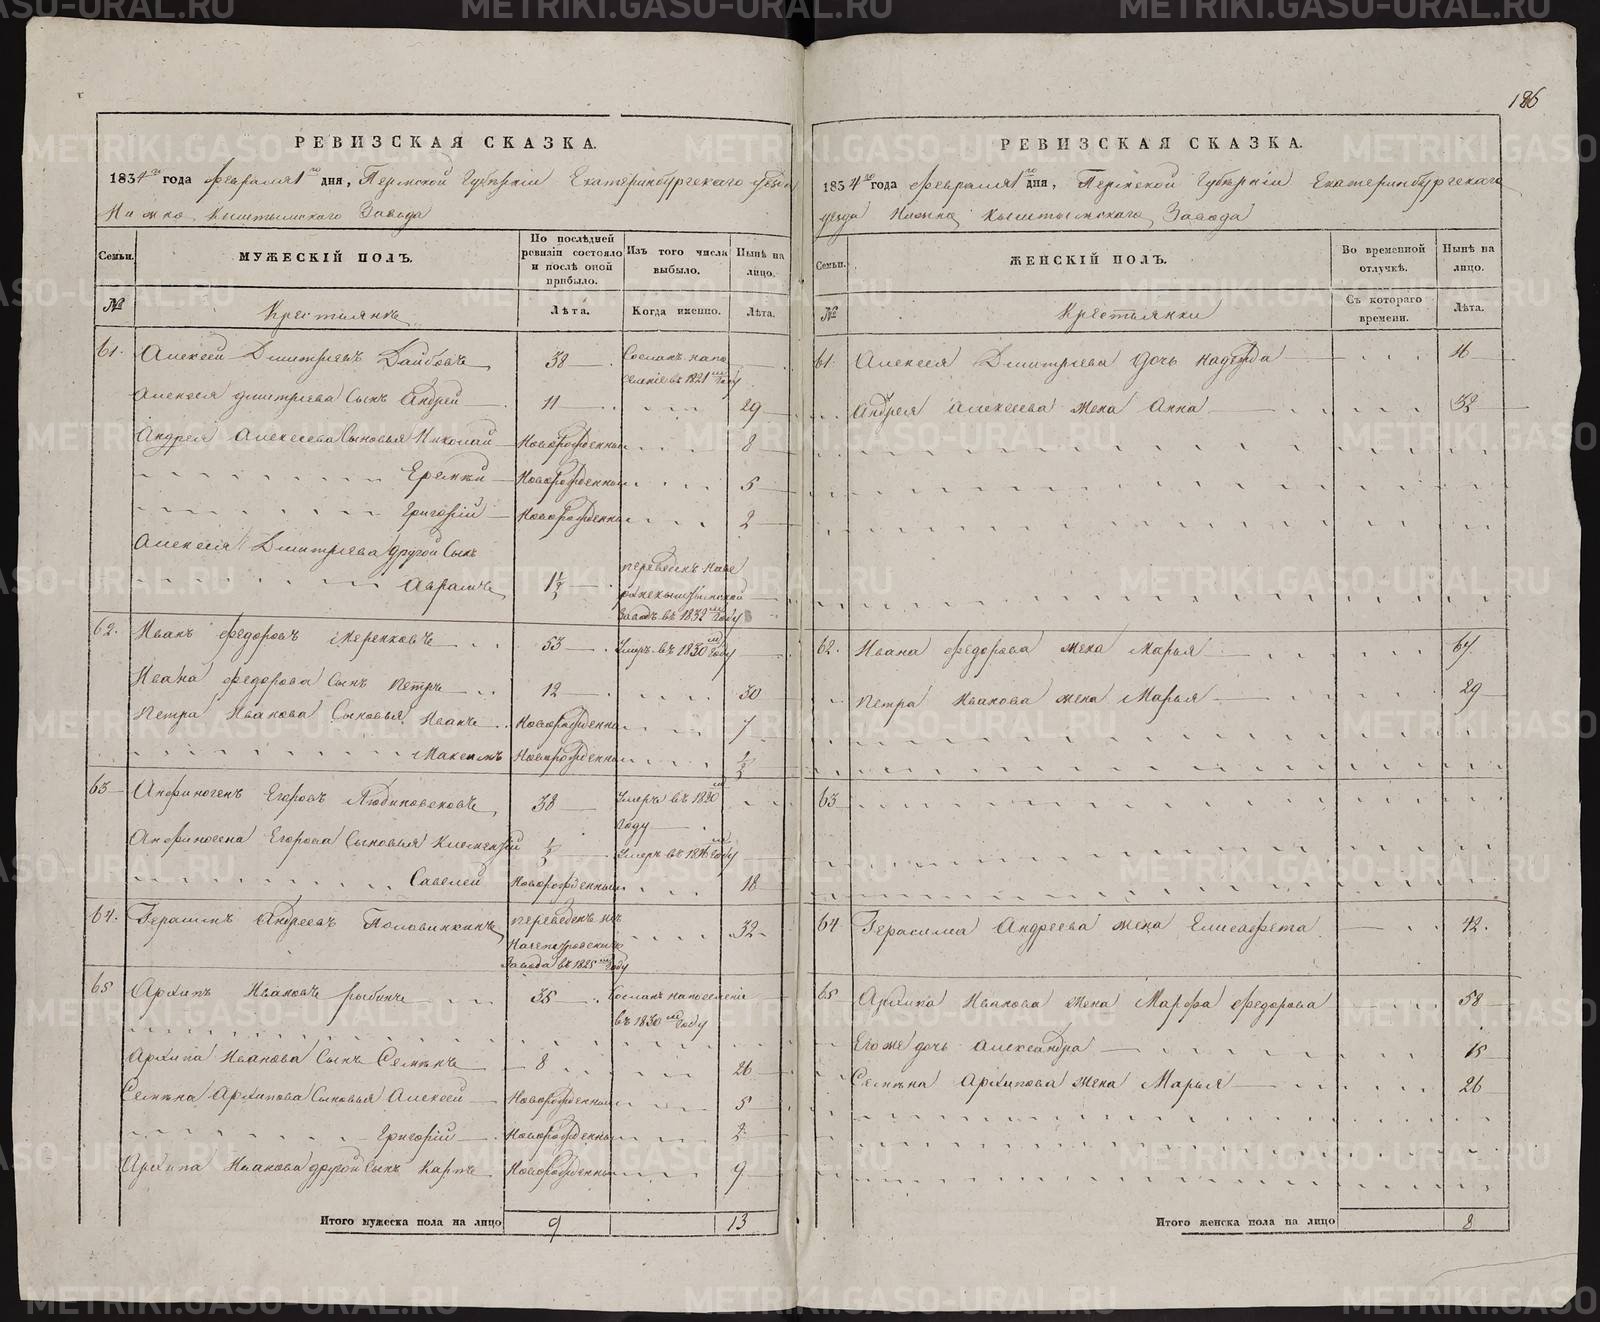 186
РЕВИЗСКАЯ СКАЗКА.
1834го года февраля 1го дня, Пермской Губерніи Екатеринбургскаго уезда
Нижне Кыштымскаго Завода
Семьи.
МУЖЕСКІЙ ПОЛЪ.
По послѣдней ревизіи состояло и послѣ оной прибыло.
Изъ того числа выбыло.
Нынѣ на лицо.
№
Крестьянъ
Лѣта.
Когда именно.
Лѣта.
61. Алексей Дмитріевъ 38 Сосланъ на поселеніе въ 1821м году
Алексея Дмитріева сынъ Андрей 11 29
Андрея Алексеева сыновья Николай Новорожденный 8
Новорожденный 5
Григорій Новорожденный 2
Алексея Дмитріева другой сынъ
Аврамъ 1½ переведенъ
Заводъ въ 1832м году
62. Иванъ Федоровъ 53 Умеръ въ 1830м году
Ивана Федорова сынъ Петръ 12 30
Петра Иванова сыновья Иванъ Новорожденный 7
Максимъ Новорожденный ½
63 Анфиногенъ Егоровъ 38 Умеръ въ 1830м
году
Анфиногена Егорова сыновья ½ Умеръ въ году
Савелей Новорожденный 18
64. Герасимъ Андреевъ Половинкинъ переведенъ изъ 32
Завода въ 1825м году
65 Архипъ Ивановъ Рыбинъ 35 Сосланъ на поселеніе
въ 1830м году
Архипа Иванова сынъ Семенъ 8 26
Семена Архипова сыновья Алексей Новорожденный 5
Григорій Новорожденный 2
Архипа Иванова другой сынъ Карпъ Новорожденный 9
Итого мужеска пола на лицо 9 13
РЕВИЗСКАЯ СКАЗКА.
1834го года февраля 1го дня, Пермской Губерніи Екатеринбургскаго
уезда Нижне Кыштымскаго Завода
Семьи.
ЖЕНСКІЙ ПОЛЪ.
Во временной отлучкѣ.
Нынѣ на лицо.
№
Крестьянки
Съ котораго времени.
Лѣта.
61. Алексея Дмитріева дочь Надежда 16
Андрея Алексеева жена Анна 32
62. Ивана Федорова жена Марья
Петра Иванова жена Марья 29
63
64 Герасима Андреева жена Елисавета 42.
65 Архипа Иванова жена Марфа Федорова 58
Его же дочь Александра 15
Семена Архипова жена Марья 26
Итого женска пола на лицо 8
METRIKI.GASO-URAL.RU